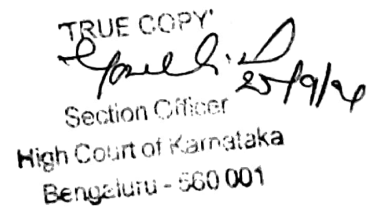 'TRUE COPY'
25/9/24
Section Officer
High Court of Karnataka
Bengaluru - 560 001